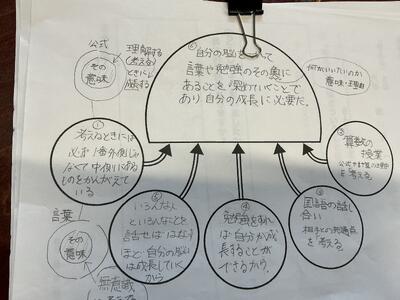 公式
その
意味
理解する
(考える)
ときに
成長する
⑥自分の脳にとって
言葉や勉強のその奥に
あることを深めていくことで
あり自分の成長に必要だ。
何がいいたいのか
意味・理由
①
考えるときには
必ず1番外側じゃ
なくて中側にある
ものをかんがえて
いる
言葉
その
意味
無意識
いろんな人
といろんなことを
話せば はなす
ほど自分の脳
は成長していく
から
④
勉強をすれ
ば自分が成
長することが
できるから。
③
国語の話し
合い
相手との共通点
を考える。
②
算数の
授業
公式や計算の理由
を考える。